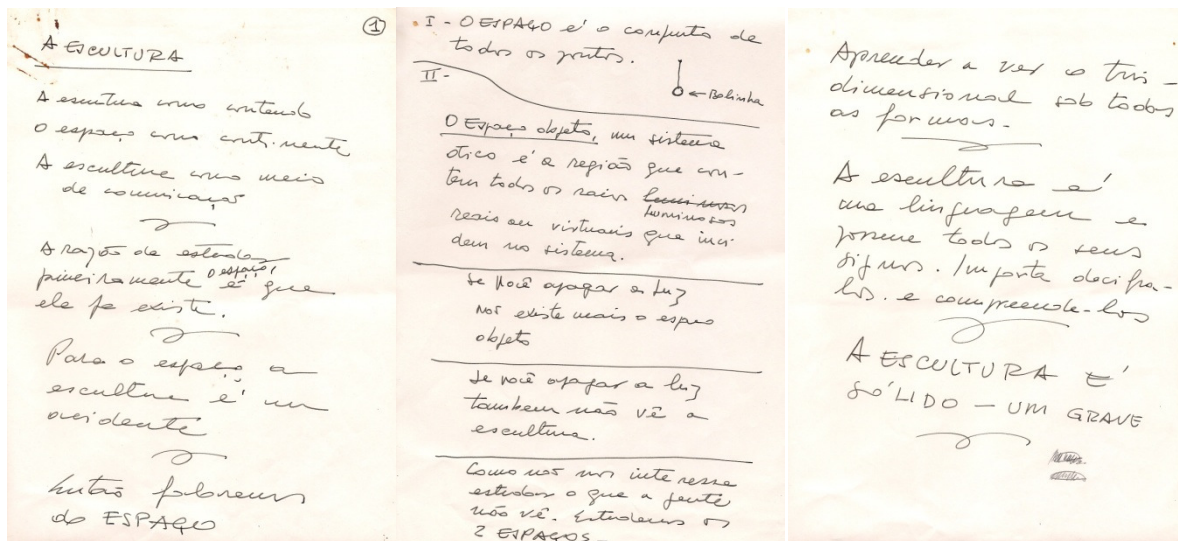 1
A ESCULTURA
A escultura como conteudo
O espaço como continente
A escultura como meio
de comunicação
A razão de estudar
primeiramente o espaço, é que
ele já existe.
Para o espaço a
escultura é um
acidente
Então falaremos
do ESPAÇO
I - O ESPAÇO é o conjunto de
todos os pontos.
II -
← Bolinha
O Espaço objeto, num sistema
ótico é a região que con-
tem todos os raios luminosos
luminosos
reais ou virtuais que inci
dem no sistema.
Se você apagar a luz
não existe mais o espaço
objeto
Se você apagar a luz
tambem não vê a
escultura.
Como nos interessa
estudar o que a gente
não vê. Estudemos os
2 ESPAÇOS -
Aprender a ver o tri-
dimensional sob todas
as formas.
A escultura é
uma linguagem e
possue todos os seus
signos. Importa decifra-
los. e compreende-los
A ESCULTURA É
SÓLIDO — UM GRAVE